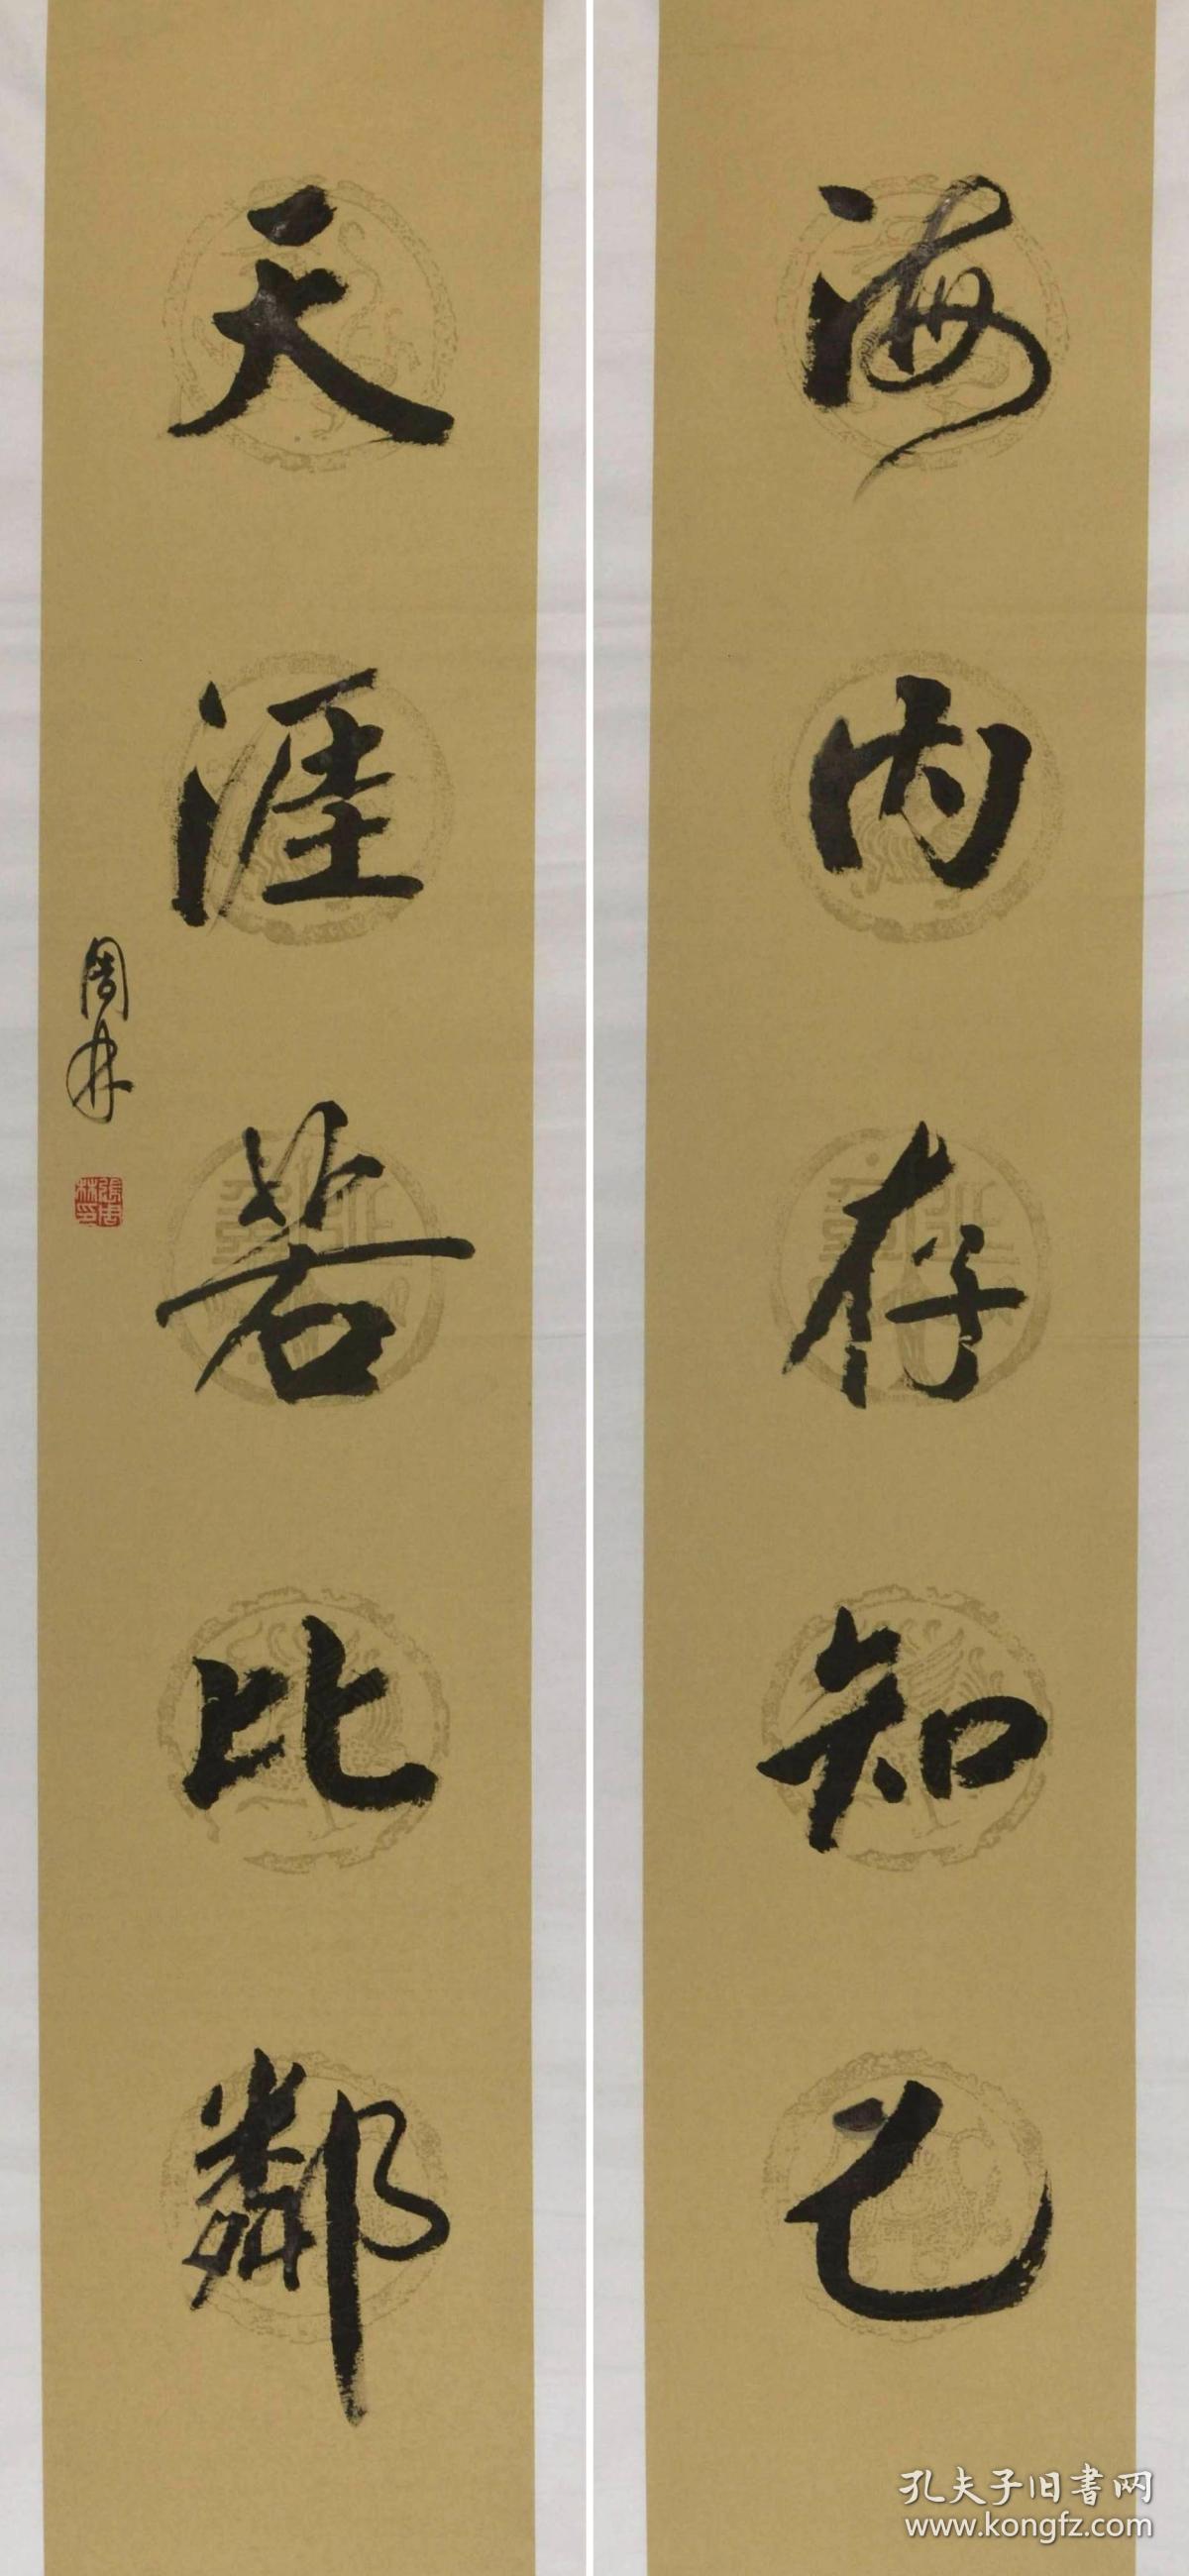 海内存知己
天涯若比鄰
周林
張周林印
孔夫子旧書网
www.kongfz.com